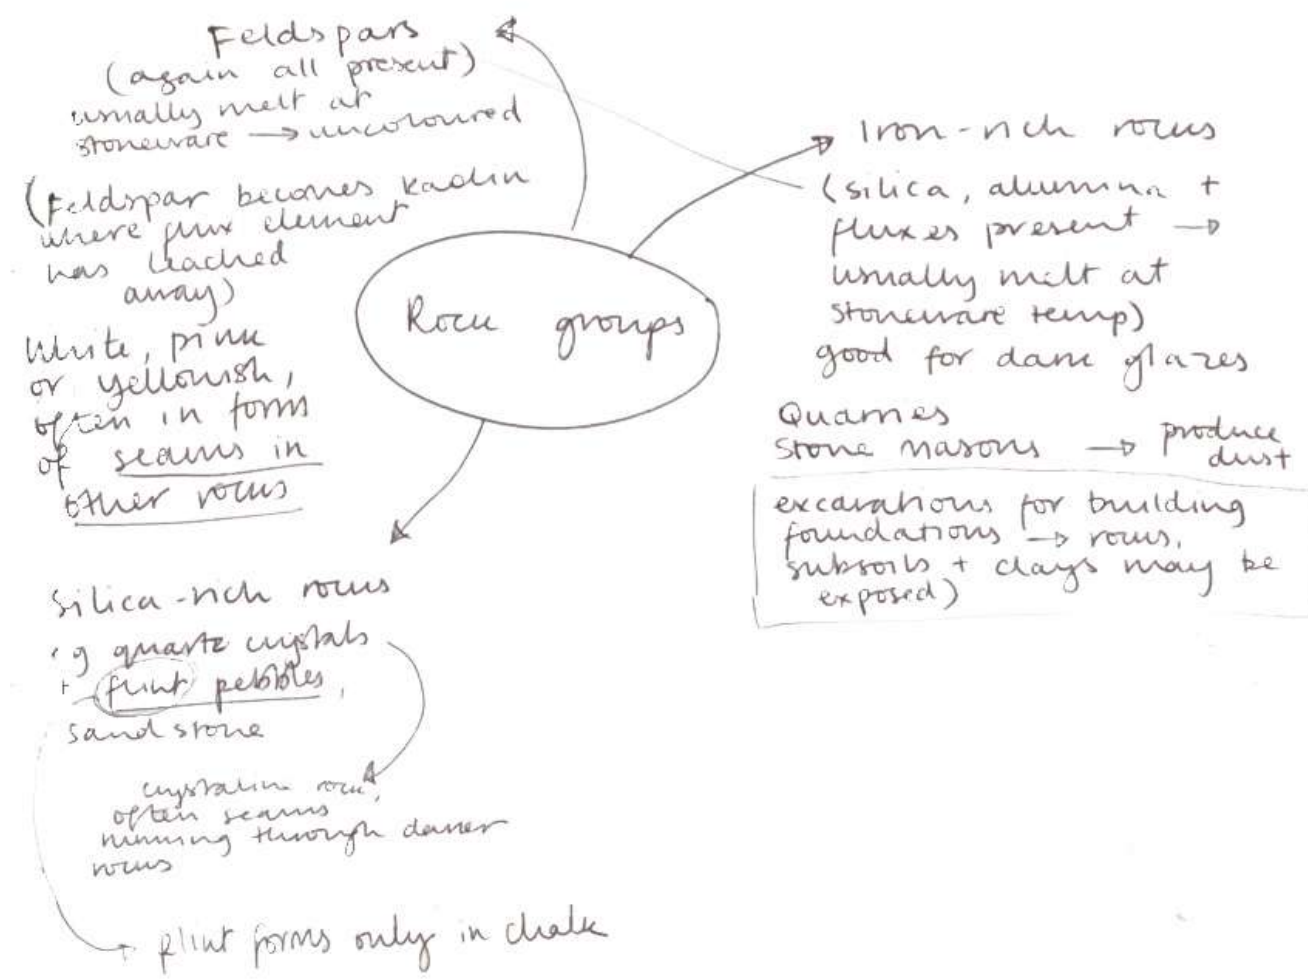 Feldspars
(again all present)
usually melt at
stoneware → uncoloured
(Feldspar becomes kaolin
where flux element
has leached
away)
White, pink
or yellowish,
often in form
of seams in
other rocks
Rock groups
Iron-rich rocks
(silica, alumina +
fluxes present →
usually melt at
stoneware temp)
good for dark glazes
Quarries
Stone masons → produce
dust
excavations for building
foundations → rocks,
subsoils + clays may be
exposed)
Silica-rich rocks
eg quartz crystals
+ flint pebbles,
sandstone
crystalline rock,
often seams
running through darker
rocks
flint forms only in chalk